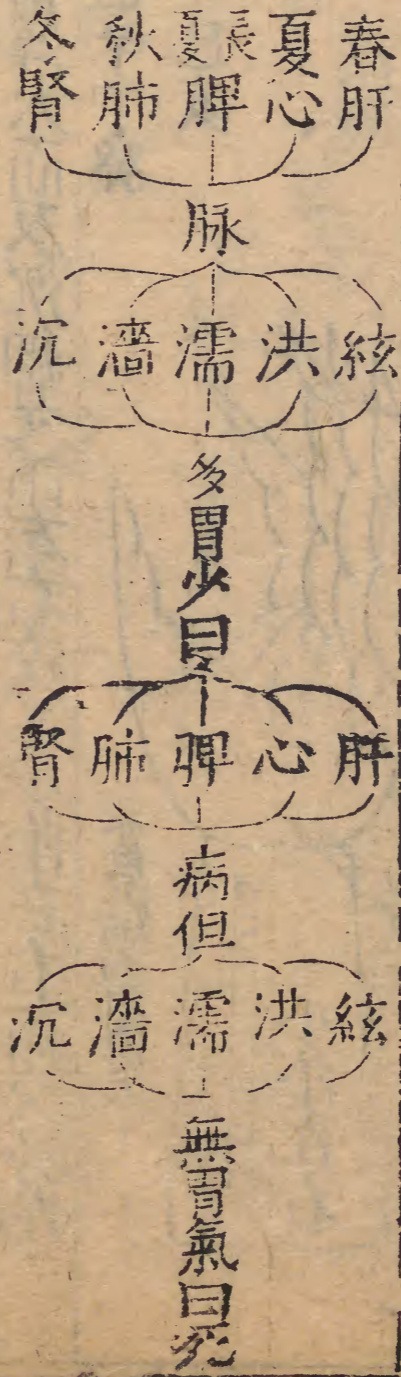 春肝
夏心
長夏脾
秋肺
冬腎
脉
絃洪濡濇沉
多胃少曰
肝心脾肺腎
病但
絃洪濡濇沉
無胃氣曰死